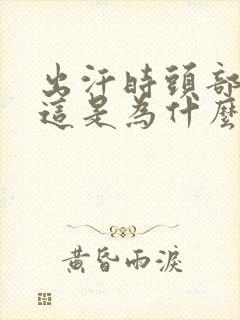 出汗時頭部
這是為什麼
黃昏雨淚